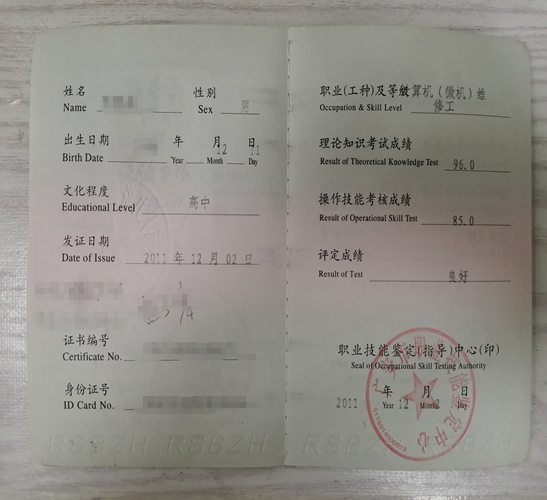 姓名
Name
性别
Sex 男
出生日期 年 月 日
Birth Date Year 12 Month 11 Day
文化程度
Educational Level 高中
发证日期
Date of Issue 2011 年 12 月 02 日
证书编号
Certificate No.
身份证号
ID Card No.
RSBZH RSBZH
职业(工种)及等级 算机(微机)维
Occupation & Skill Level 修工
理论知识考试成绩
Result of Theoretical Knowledge Test 96.0
操作技能考核成绩
Result of Operational Skill Test 85.0
评定成绩
Result of Test 良好
职业技能鉴定(指导)中心(印)
Seal of Occupational Skill Testing Authority
年 月 日
2011 Year 12 Month 2 Day